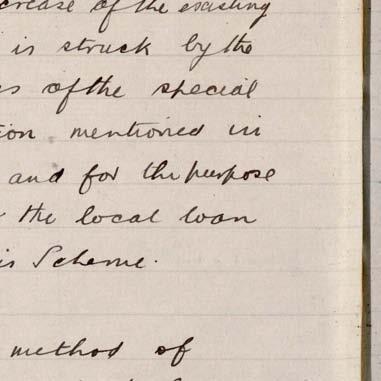 crease of the existing
is struck by the
of the special
tion mentioned in
and for the purpose
the local loan
is Scheme.
method of